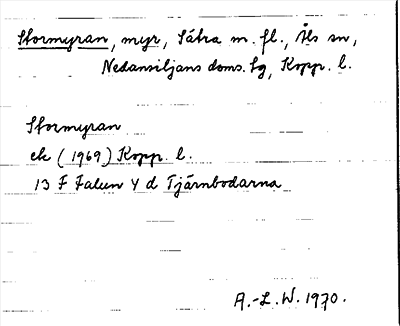 Stormyran, myr, Sätra m. fl., Åls sn,
Nedansiljans doms. lg, Kopp. l.
Stormyran
ek (1969) Kopp. l.
13 F Falun 4 d Tjärnbodarna
A.-L. W. 1970.